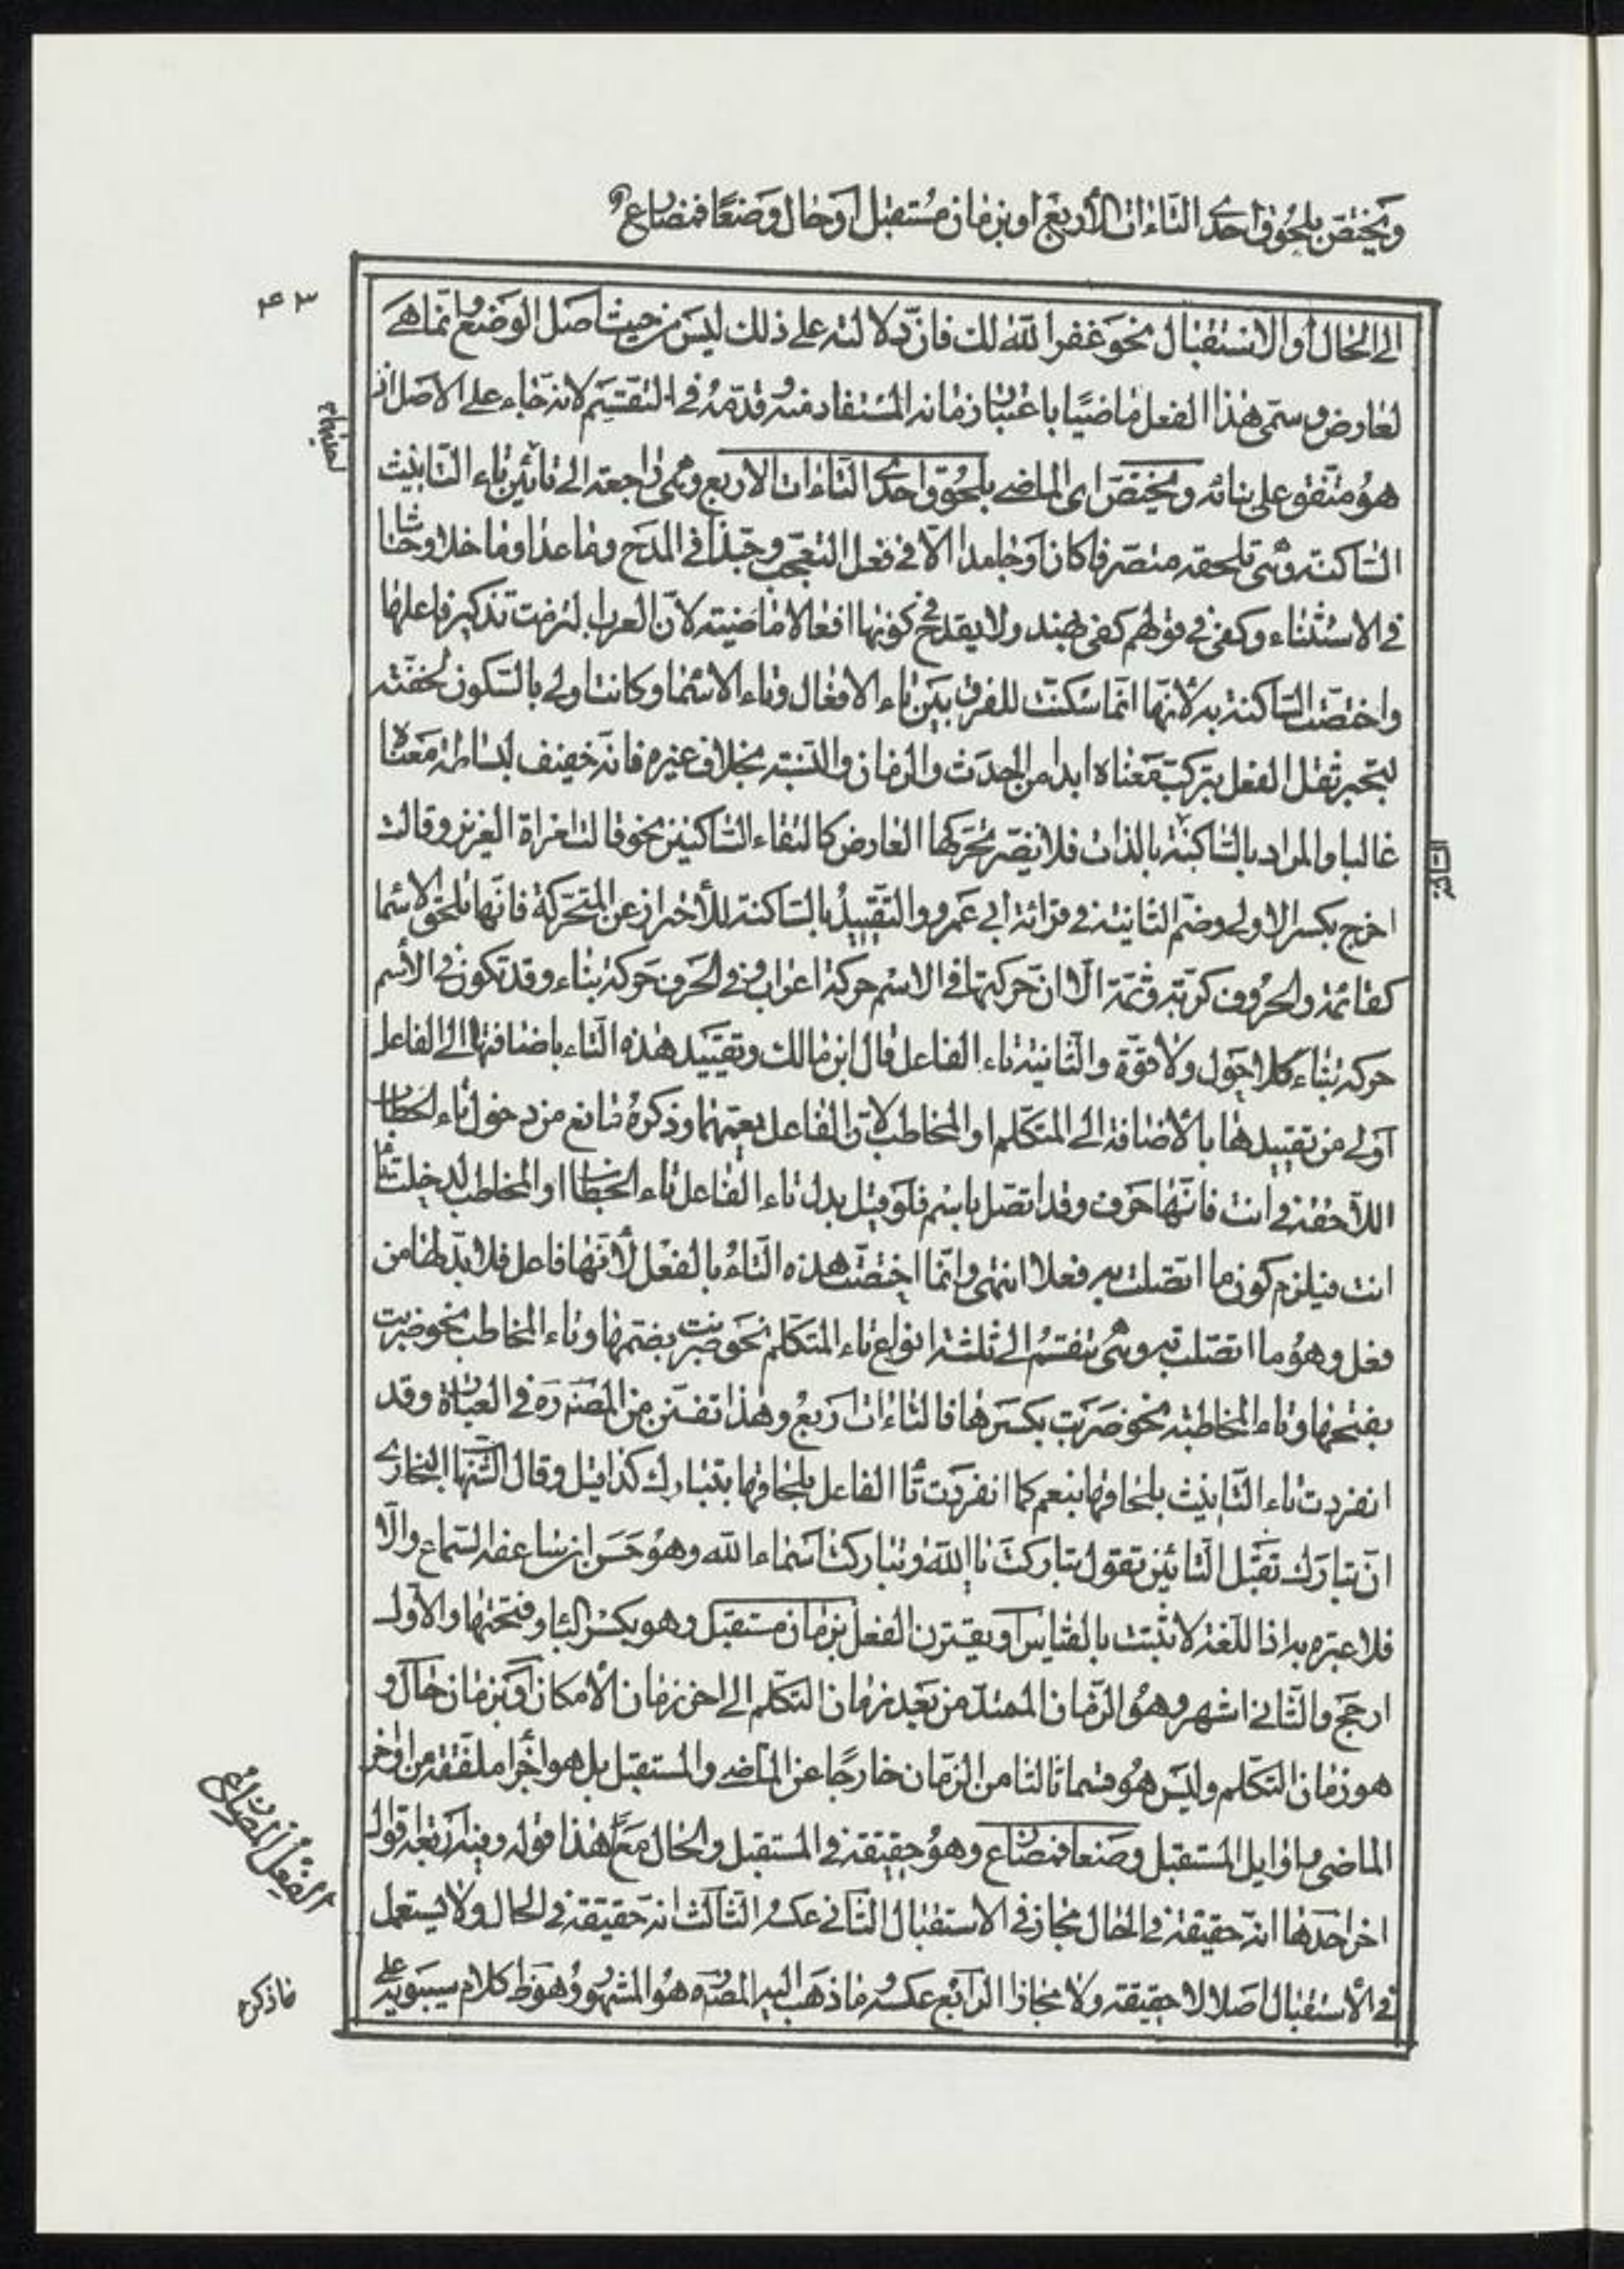 ويختص بلحوق احدى التاءات الأربع او بزمان مستقبل او حال وضعًا فمضارع
۴۳
الى الحال او الاستقبال نحو غفر الله لك فان دلالته على ذلك ليس من حيث اصل الوضع وانما هى
لعارض وسمى هذا الفعل ماضيًا باعتبار زمانه المستفاد منه وقدّمه فى التقسيم لانه جاء على الاصل اذ
هو متفق على بنائه ويختص اى الماضى بلحوق احدى التاءات الاربع وهى راجعة الى تائين تاء التانيث
الساكنة وهى تلحقه متصرفا كان او جامدا الّا فى فعل التعجب وحبذا فى المدح وما عدا وما خلا وحاشا
فى الاستثناء وكفى فى قولهم كفى بهند ولا يقدح فى كونها افعالا ماضية لانّ العرب التزمت تذكير فاعلها
واختصت الساكنة به لأنّها انّما سكنت للفرق بين تاء الافعال وتاء الاسماء وكانت اولى بالسكون لخفّته
ليجبر ثقل الفعل بتركب معناه ابدا من الحدث والزمان والنسبة بخلاف غيره فانه خفيف لبساطة معناه
غالبا والمراد بالساكنة بالذات فلا يضرّ تحركها العارض كالتقاء الساكنين نحو قالت امراة العزيز وقالت
اخرج بكسر الاولى وضمّ الثانية فى قرائة ابى عمرو والتقييد بالساكنة للأحتراز عن المتحرّكة فانّها تلحق الاسما
كقائمة والحروف كربّة وثمّة الّا ان حركتها فى الاسم حركة اعراب وفى الحرف حركة بناء وقد تكون فى الأسم
حركة بناء كلا حول ولا قوّة والثانية تاء الفاعل قال ابن مالك وتقييد هذه التاء باضافتها الى الفاعل
آولى من تقييدها بالأضافة الى المتكلم او المخاطب لانّ الفاعل يعمّهما وذكره مانع من دخول تاء الخطاب
اللاحقة فى انت فانّها حرف وقد اتصل باسم فلو قيل بدل تاء الفاعل تاء الخطاب او المخاطب لدخلت تاء
انت فيلزم كون ما اتصلت به فعلا انتهى وانّما اختصّت هذه التاء بالفعل لأنّها فاعل فلا بدّ لها من
فعل وهو ما اتصلت به وهى تنقسم الى ثلثة انواع تاء المتكلم نحو ضربت بضمّها وتاء المخاطب نحو ضربت
بفتحها وتاء المخاطبة نحو ضربت بكسرها فالتاءات اربع وهذا تفنن من المصنف ره فى العبارة وقد
انفردت تاء التانيث بلحاقها بنعم كما انفردت تا الفاعل بلحاقها بتبارك كذا قيل وقال الشهاب البخارى
انّ تبارك تقبل التائين تقول تباركت يا الله وتباركت اسماء الله وهو حسن ان ساعفه السماع والّا
فلا عبرة به اذ اللغة لا تثبت بالقياس او يقترن الفعل بزمان مستقبل وهو بكسر الباء وفتحتها والاوّل
ارجح والثانى اشهر وهو الزمان الممتد من بعد زمان التكلم الى اخر زمان الأمكان او بزمان حال و
هو زمان التكلم وليس هو قسما ثالثا من الزمان خارجًا عن الماضى والمستقبل بل هو اجزا ملفّقة من اواخر
الماضى واوايل المستقبل وضعا فمضارع وهو حقيقة فى المستقبل والحال معًا هذا قول وفيه اربعة اقوال
اخر احدها انه حقيقة فى الحال مجاز فى الاستقبال الثانى عكسه الثالث انه حقيقة فى الحال ولا يستعمل
فى الأستقبال اصلا لا حقيقة ولا مجازا الرابع عكسه وما ذهب اليه المص ره هو المشهور وهو ظ كلام سيبويه على
الفعل المضارع
ما ذكره